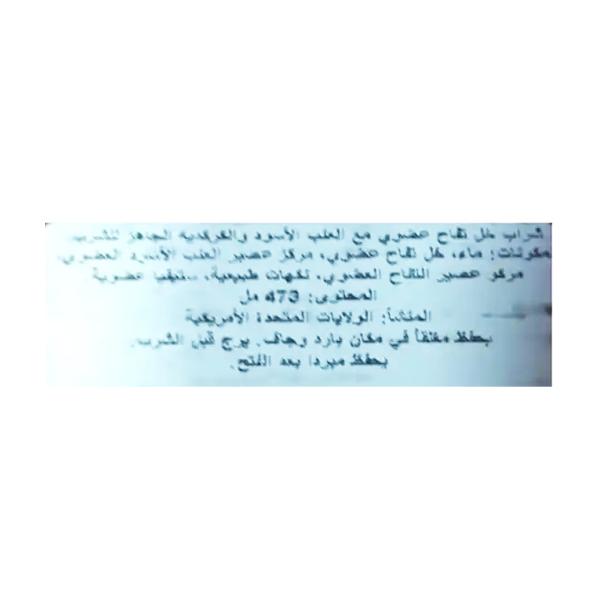 شراب خل تفاح عضوي مع العنب الأسود والكركديه الجاهز للشرب.
مكونات: ماء، خل تفاح عضوي، مركز عصير العنب الأسود العضوي،
مركز عصير التفاح العضوي، نكهات طبيعية، ستيفيا عضوية
المحتوى: 473 مل
المنشأ: الولايات المتحدة الأمريكية
يحفظ مغلقاً في مكان بارد وجاف. يرج قبل الشرب.
يحفظ مبردا بعد الفتح.